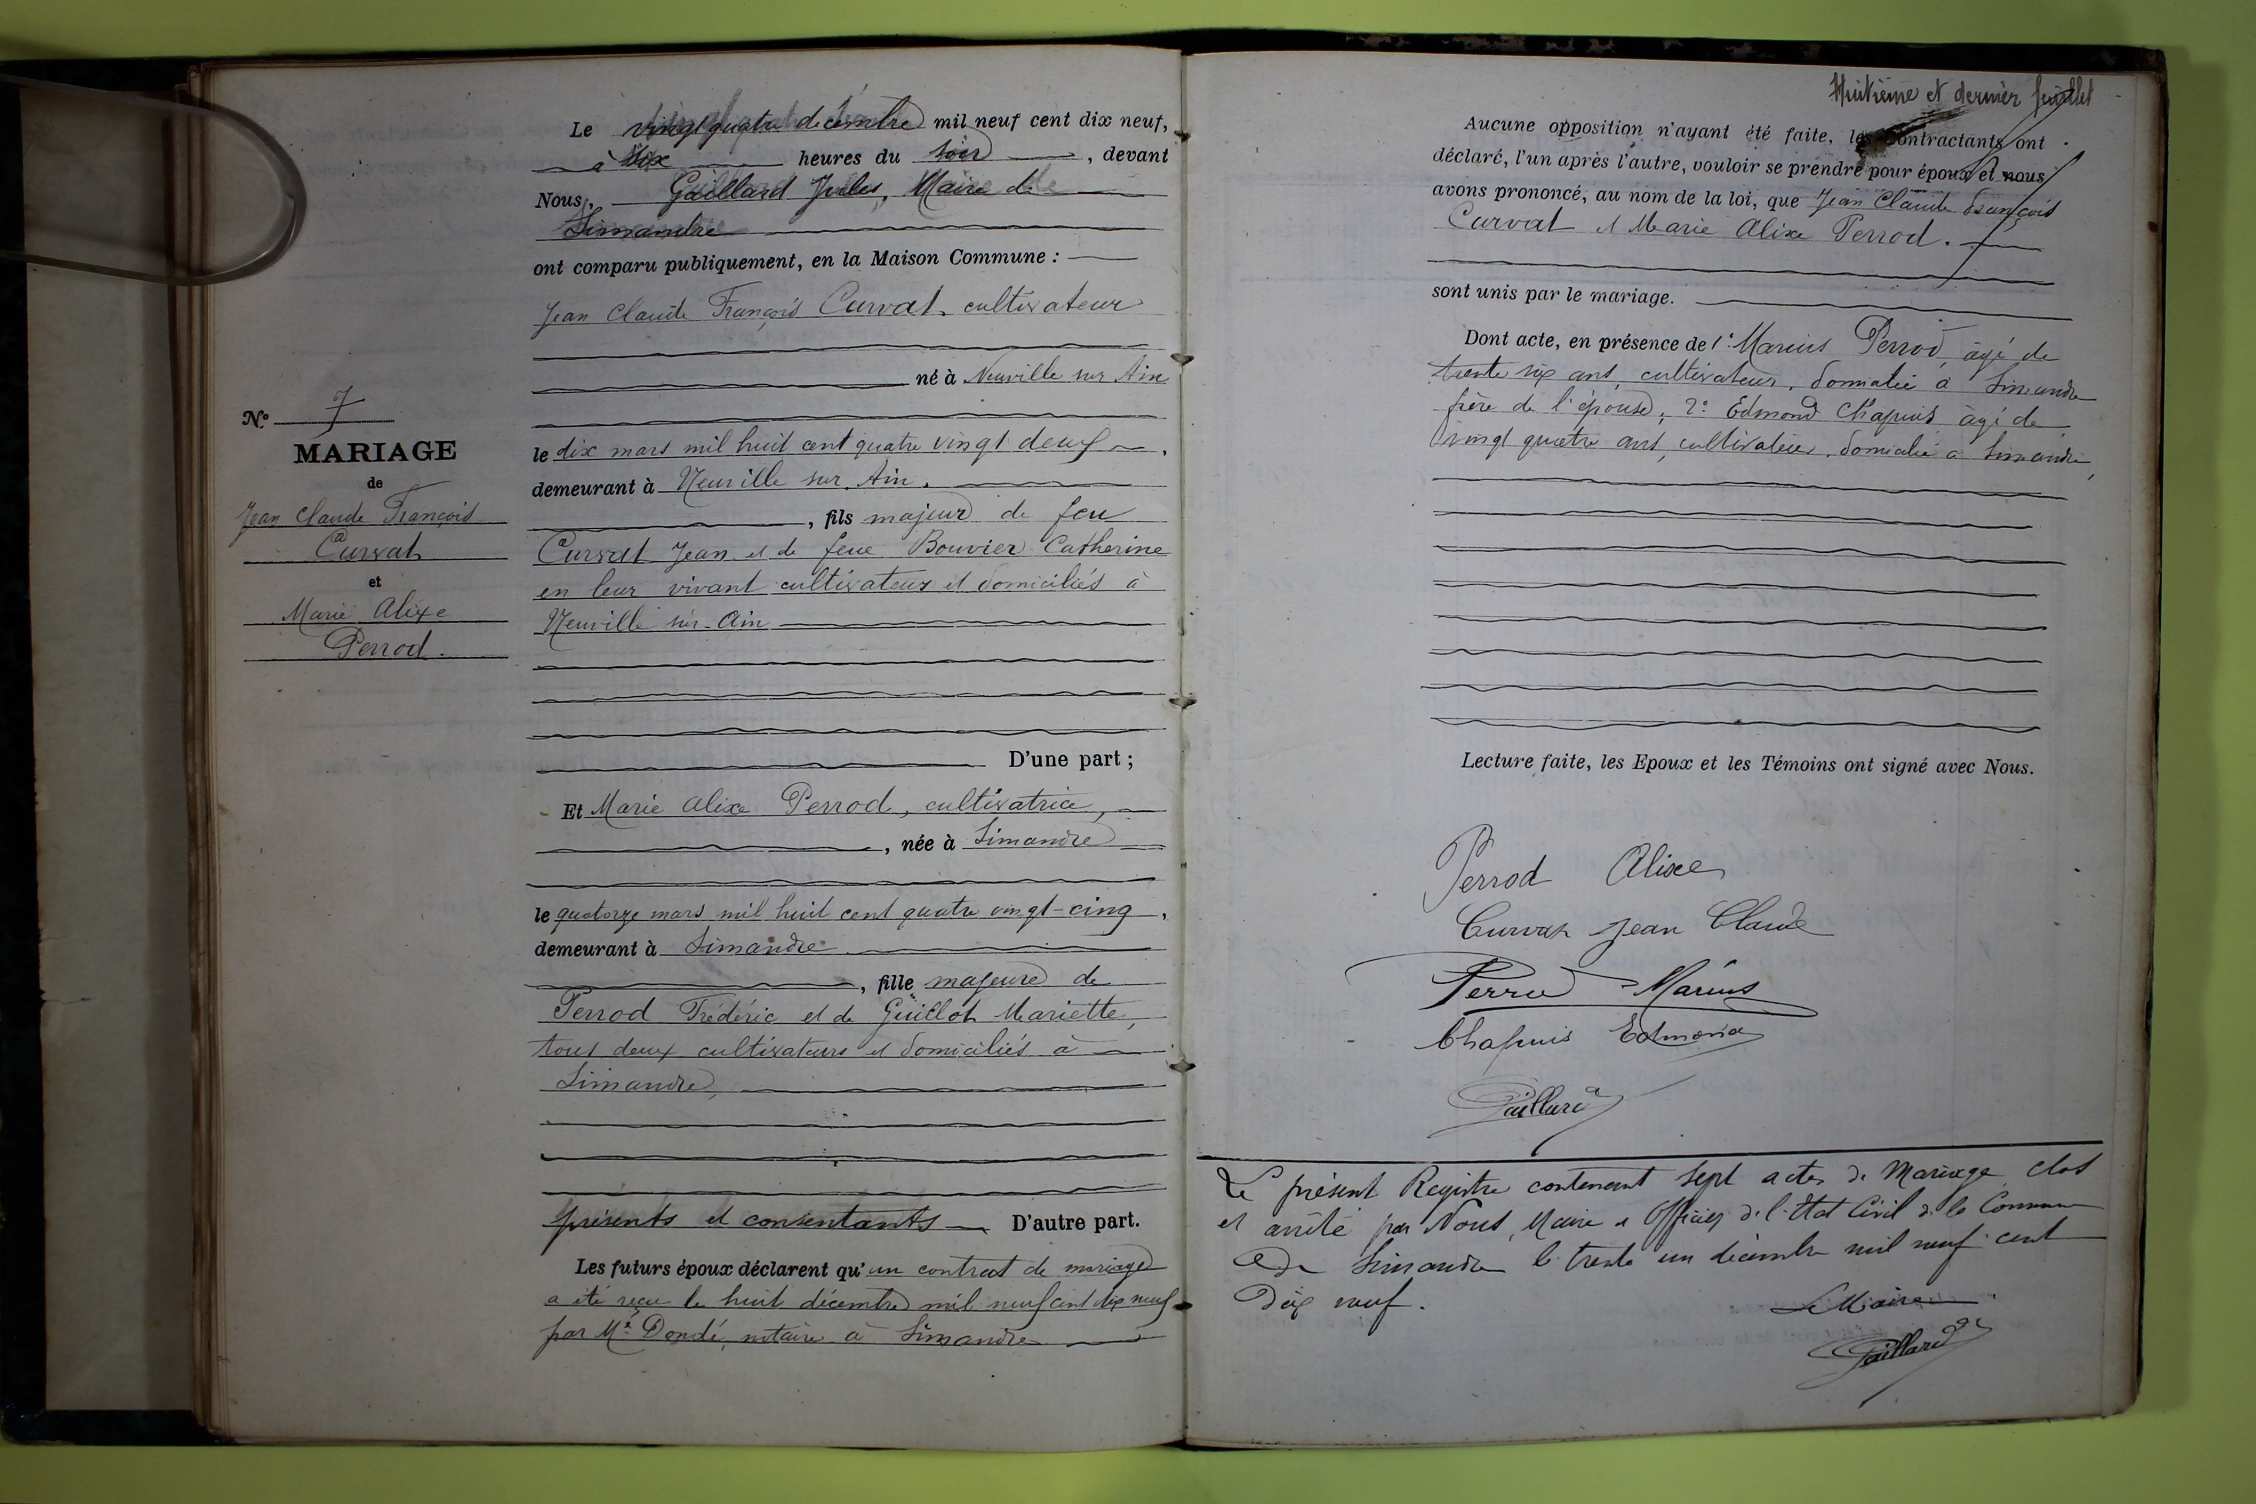 Le vingt quatre décembre mil neuf cent dix neuf,
à six heures du soir, devant
Nous, Gaillard Jules, Maire de
Simandre
ont comparu publiquement, en la Maison Commune :
Jean Claude François Curvat, cultivateur
né à Neuville sur Ain
le dix mars mil huit cent quatre vingt deux,
demeurant à Neuville sur Ain.
, fils majeur de feu
Curvat Jean et de feue Bouvier Catherine
en leur vivant cultivateurs et domiciliés à
Neuville sur Ain
D'une part ;
N° 7
MARIAGE
de
Jean Claude François
Curvat
et
Marie Alixe
Perrod.
Et Marie Alixe Perrod, cultivatrice,
, née à Simandre
le quatorze mars mil huit cent quatre vingt-cinq,
demeurant à Simandre
, fille majeure de
Perrod Frédéric et de Guillot Mariette,
tous deux cultivateurs et domiciliés à
Simandre,
présents et consentants D'autre part.
Les futurs époux déclarent qu'un contrat de mariage
a été reçu le huit décembre mil neuf cent dix neuf
par Me Dondé, notaire à Simandre
Huitième et dernier feuillet
Aucune opposition n'ayant été faite, les contractants ont
déclaré, l'un après l'autre, vouloir se prendre pour époux et nous
avons prononcé, au nom de la loi, que Jean Claude François
Curvat et Marie Alixe Perrod.
sont unis par le mariage.
Dont acte, en présence de 1° Marius Perrod, âgé de
trente six ans, cultivateur, domicilié à Simandre
frère de l'épouse, 2° Edmond Chapuis âgé de
vingt quatre ans, cultivateur, domicilié à Simandre,
Lecture faite, les Epoux et les Témoins ont signé avec Nous.
Perrod Alixe
Curvat Jean Claude
Perrod Marius
Chapuis Edmond
Gaillard
Le présent Registre contenant sept actes de Mariage clos
et arrêté par Nous, Maire et Officier de l'Etat Civil de la Commune
de Simandre le trente un décembre mil neuf cent
dix neuf.
Le Maire
Gaillard